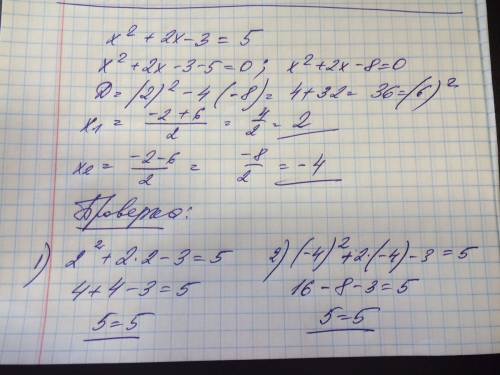 x² + 2x - 3 = 5
x² + 2x - 3 - 5 = 0; x² + 2x - 8 = 0
D = (2)² - 4 (-8) = 4 + 32 = 36 = (6)²
x₁ = (-2 + 6)/2 = 4/2 = 2
x₂ = (-2 - 6)/2 = -8/2 = -4
Проверка:
1) 2² + 2·2 - 3 = 5
4 + 4 - 3 = 5
5 = 5
2) (-4)² + 2·(-4) - 3 = 5
16 - 8 - 3 = 5
5 = 5